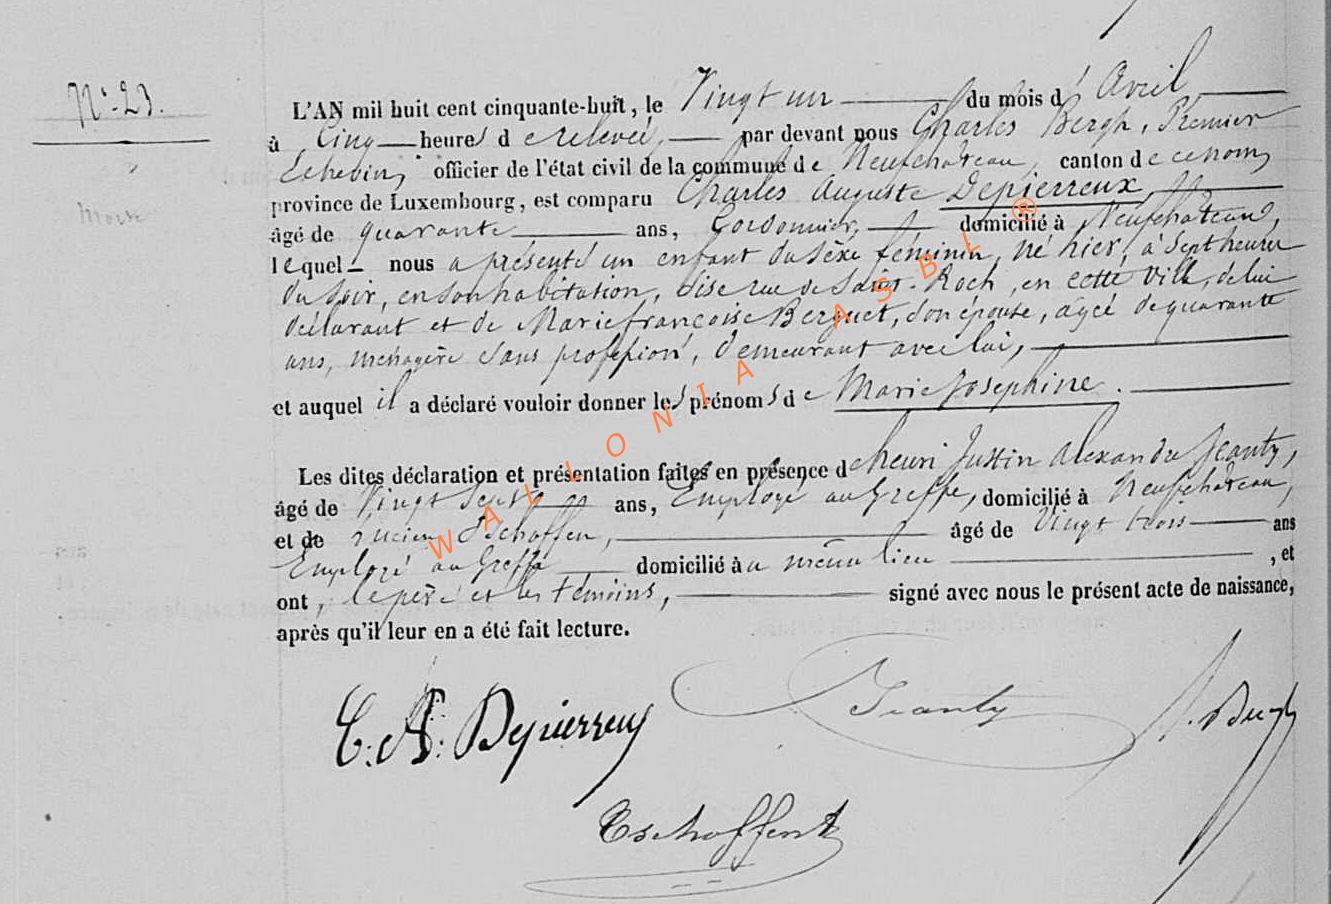 N° 23.
L'AN mil huit cent cinquante-huit, le Vingt un du mois d' Avril
à Cinq heures de relevée, par devant nous Charles Bergh, Premier
Echevin, officier de l'état civil de la commune de Neufchateau, canton de ce nom,
province de Luxembourg, est comparu Charles Auguste Depierreux,
âgé de quarante ans, Cordonnier, domicilié à Neufchateau,
lequel nous a présenté un enfant du sexe féminin, né hier, à sept heures
du soir, en son habitation, sise rue de Saint-Roch, en cette ville, de lui
déclarant et de Marie françoise Berguet, son épouse, agée de quarante
ans, ménagère sans profession, demeurant avec lui,
et auquel il a déclaré vouloir donner les prénoms de Marie Josephine.
Les dites déclaration et présentation faites en présence de henri Justin Alexandre Jeanty,
âgé de Vingt Sept ans, Employé au Greffe, domicilié à Neufchateau,
et de Lucien Tschoffen, âgé de Vingt trois ans
Employé au Greffe domicilié au même lieu , et
ont, le père et les témoins, signé avec nous le présent acte de naissance,
après qu'il leur en a été fait lecture.
C. A. Depierreux Jeanty
Tschoffen
WALLONIA ASBL ®